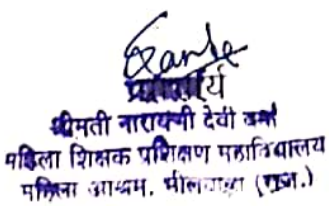 प्राचार्य
श्रीमती नारायणी देवी वर्मा
महिला शिक्षक प्रशिक्षण महाविद्यालय
महिला आश्रम, भीलवाड़ा (राज.)